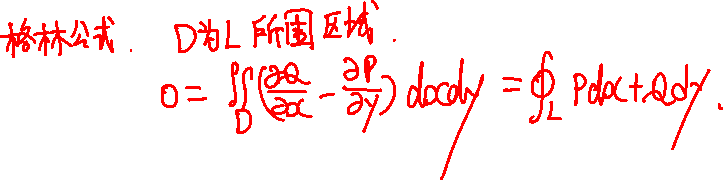 格林公式. D为L所围区域.
0 = ∬_D (∂Q/∂x - ∂P/∂y) dxdy = ∮_L Pdx+Qdy.